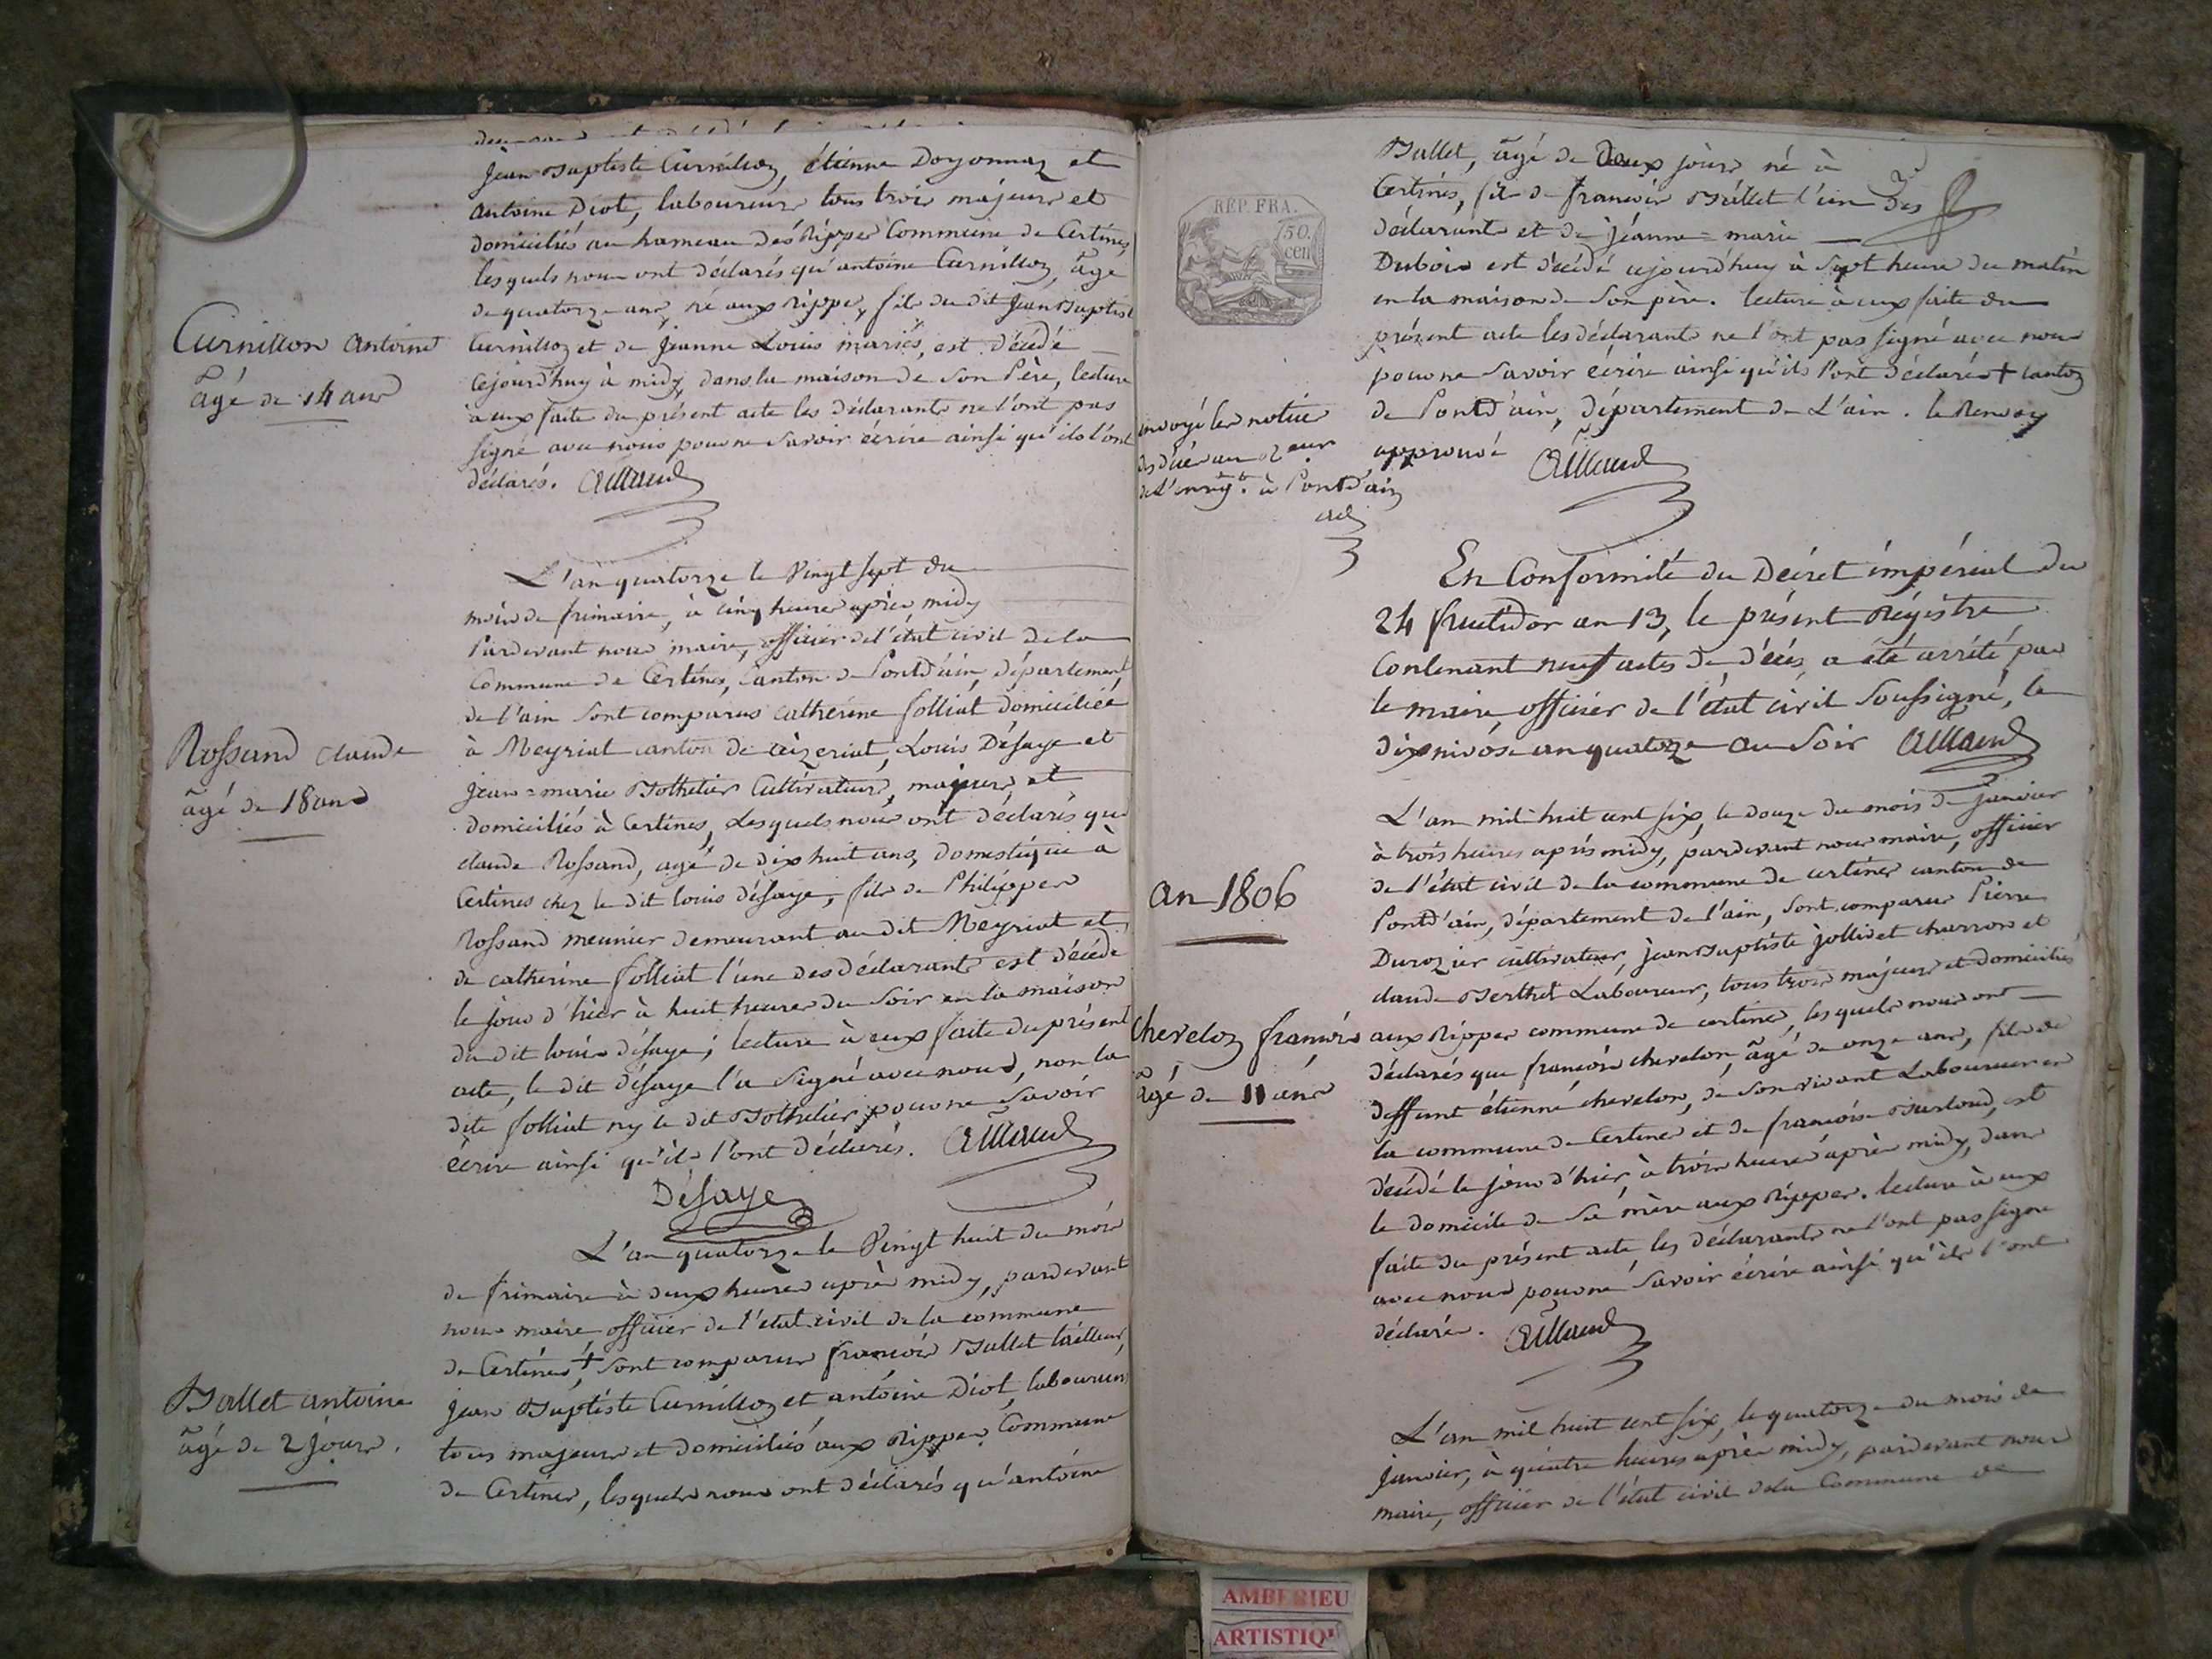 Jean Baptiste Curnilloz, étienne Doyonnaz et
antoine Diot, laboureurs tous trois majeurs et
domiciliés au hameau des Rippes Commune de Certines,
lesquels nous ont déclarés qu'antoine Curnilloz, âgé
de quatorze ans, né aux rippes, fils du dit Jean Baptiste
Curnilloz et de Jeanne Louis mariés, est décédé
Cejourd'huy à midy, dans la maison de son Père, lecture
à eux faite du présent acte les déclarants ne l'ont pas
signé avec nous pour ne savoir écrire ainsi qu'ils l'ont
déclarés.
Curnillon Antoine
âgé de 14 ans
L'an quatorze le Vingt sept du
mois de frimaire, à cinq heures après midy
Pardevant nous maire, officier de l'état civil de la
Commune de Certines, Canton de Pontd'ain, département
de l'ain sont comparus catherine folliat domiciliée
à Meyriat canton de Ceizeriat, Louis Désaye et
Jean=marie Bothelier Cultivateurs, majeurs, et
domiciliés à Certines, Lesquels nous ont déclarés que
claude Rossand, agé de dix huit ans, domestique à
Certines chez le dit louis désaye, fils de Philippe
Rossand meunier demeurant au dit Meyriat et
de catherine folliat l'une des déclarants est décédé
le jour d'hier à huit heures du soir en la maison
du dit louis désaye; lecture à eux faite du présent
acte, le dit désaye l'a signé avec nous, non la
dite folliat ny le dit Bothelier pour ne savoir
écrire ainsi qu'ils l'ont déclarés.
Désaye
Rossand claude
âgé de 18 ans
L'an quatorze le Vingt huit du mois
de frimaire à deux heures après midy, pardevant
nous maire officier de l'état civil de la commune
de Certines +, sont comparus françois Ballet tailleur,
Jean Baptiste Curnilloz et antoine Diot, laboureurs
tous majeurs et domiciliés aux Rippes Commune
de Certines, lesquels nous ont déclarés qu'antoine
Ballet antoine
âgé de 2 jours.
REP. FRA.
50.
cen
Ballet, âgé de Deux jours né à
Certines, fils de françois Ballet l'un Des
déclarants et de jeanne=marie
Dubois est décédé cejourd'huy à sept heures du matin
en la maison de son père. lecture à eux faite du
présent acte les déclarants ne l'ont pas signé avec nous
pour ne savoir écrire ainsi qu'ils l'ont déclarés + Canton
de Pontd'ain, département de L'ain. le Renvoy
approuvé
envoyé les notices
des décès au
de l'enregt. à Pontd'ain
En Conformité du Décret impérial du
24 fructidor an 13, le présent Régistre
Contenant neuf actes de décès, a été arrêté par
le maire, officier de l'état civil Soussigné, le
dix nivôse an quatorze au soir
an 1806
L'an mil huit cent six, le douze du mois de janvier
à trois heures après midy, pardevant nous maire, officier
de l'état civil de la commune de certines canton de
Pontd'ain, département de l'ain, sont comparus Pierre
Durozier cultivateur, jean Baptiste jollivet charron et
claude Berthet Laboureur, tous trois majeurs et domiciliés
aux Rippes commune de certines, lesquels nous ont
déclarés que françois chevelon, âgé de onze ans, fils de
deffunt étienne chevelon, de son vivant Laboureur en
la commune de Certines et de françoise Burloud, est
décédé le jour d'hier, à trois heures après midy, dans
le domicile de sa mère aux Rippes. lecture à eux
faite du présent acte les déclarants ne l'ont pas signé
avec nous pour ne savoir écrire ainsi qu'ils l'ont
déclarés.
Cheveloz françois
âgé de 11 ans
L'an mil huit cent six, le quatorze du mois de
Janvier, à quatre heures après midy, pardevant nous
maire, officier de l'état civil de la Commune de
AMBERIEU
ARTISTIQU